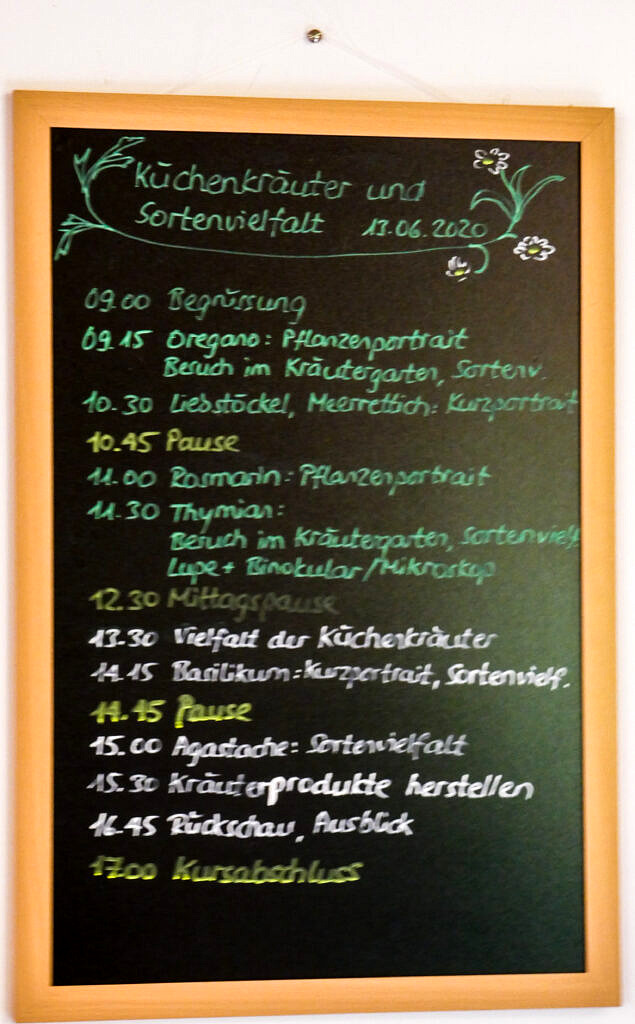 Küchenkräuter und
Sortenvielfalt 13.06.2020
09.00 Begrüssung
09.15 Oregano: Pflanzenportrait
Besuch im Kräutergarten, Sortenv.
10.30 Liebstöckel, Meerrettich: Kurzportrait
10.45 Pause
11.00 Rosmarin: Pflanzenportrait
11.30 Thymian:
Besuch im Kräutergarten, Sortenvielf.
Lupe + Binokular/Mikroskop
12.30 Mittagspause
13.30 Vielfalt der Küchenkräuter
14.15 Basilikum: Kurzportrait, Sortenvielf.
14.45 Pause
15.00 Agastache: Sortenvielfalt
15.30 Kräuterprodukte herstellen
16.45 Rückschau, Ausblick
17.00 Kursabschluss